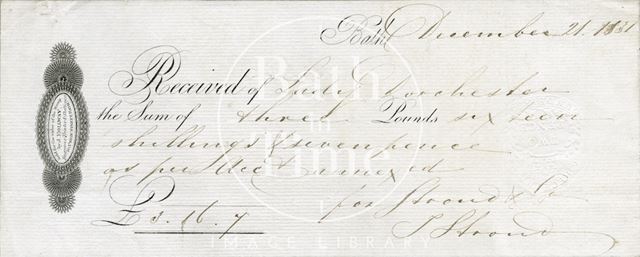 Bath December 21. 1831
Received of Lady Dorchester
the Sum of three Pounds sixteen
shillings & seven pence
as per Acct annexed
for Stroud & Co
£3.16.7 J Stroud
Bath
in
Time
IMAGE LIBRARY